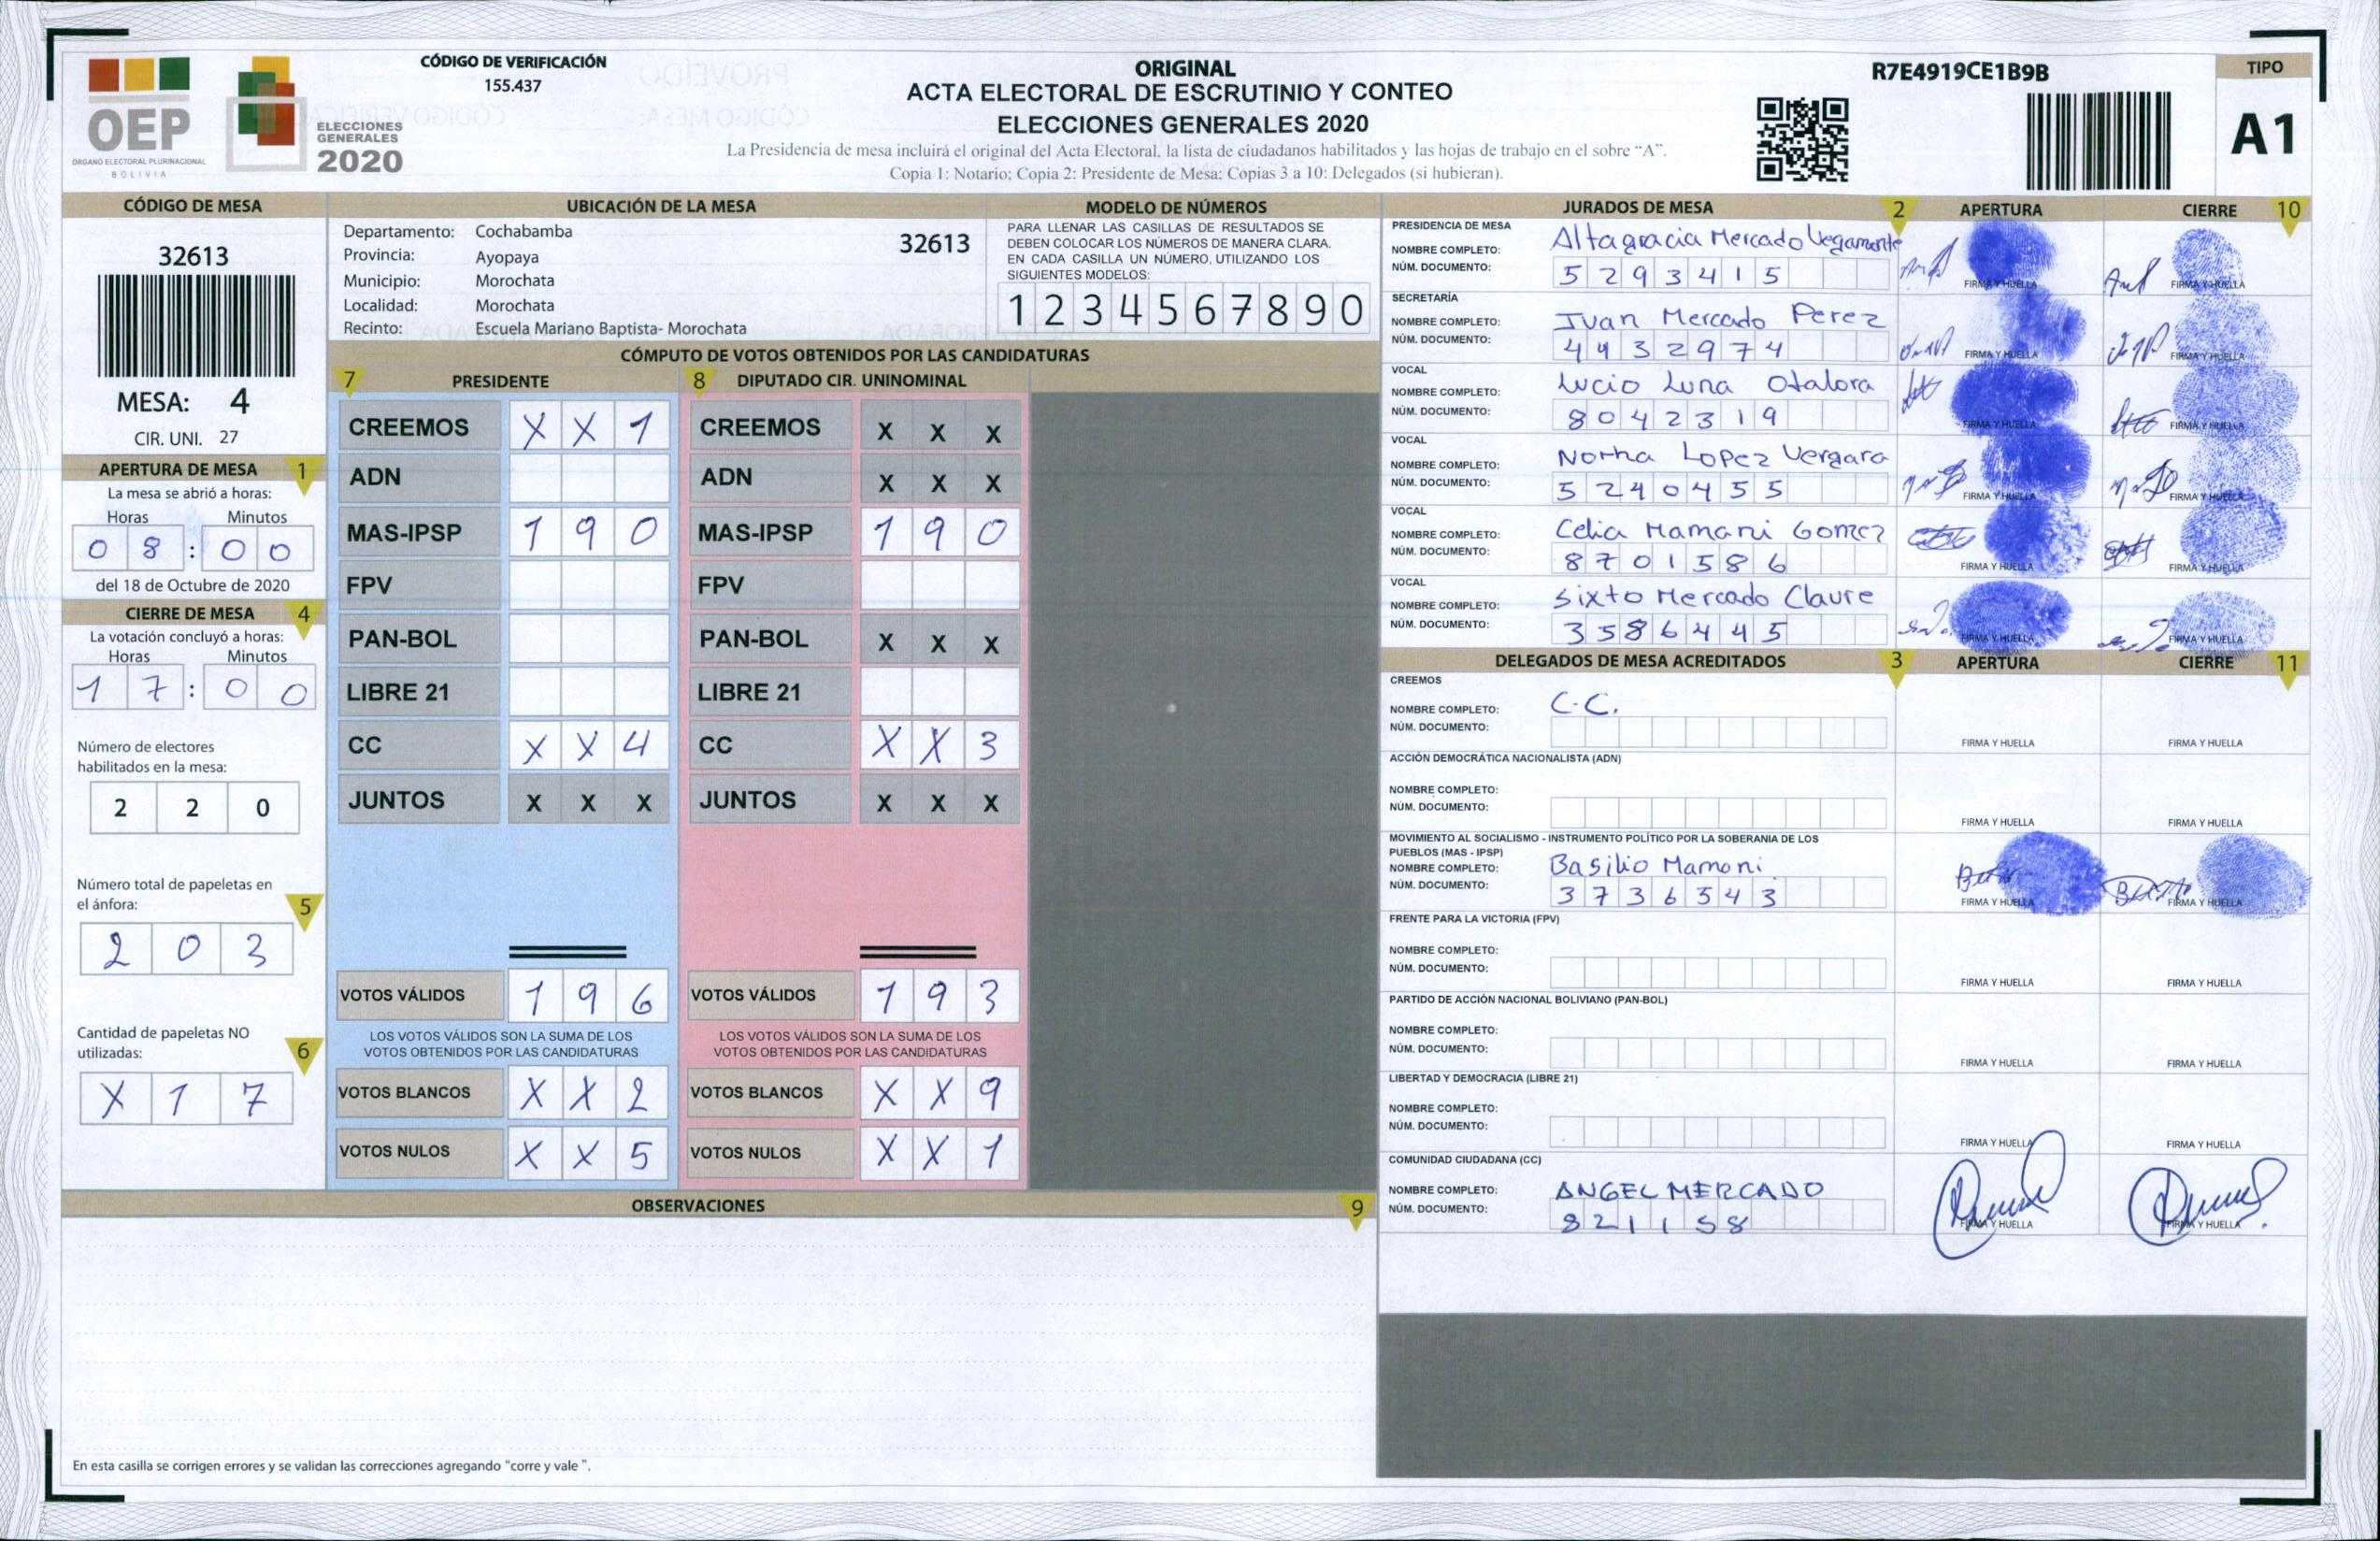 OEP
ÓRGANO ELECTORAL PLURINACIONAL
BOLIVIA
ELECCIONES
GENERALES
2020
CÓDIGO DE VERIFICACIÓN
155.437
ORIGINAL
ACTA ELECTORAL DE ESCRUTINIO Y CONTEO
ELECCIONES GENERALES 2020
La Presidencia de mesa incluirá el original del Acta Electoral, la lista de ciudadanos habilitados y las hojas de trabajo en el sobre "A".
Copia 1: Notario; Copia 2: Presidente de Mesa; Copias 3 a 10: Delegados (si hubieran).
R7E4919CE1B9B
TIPO
A1
CÓDIGO DE MESA
32613
MESA: 4
CIR. UNI. 27
APERTURA DE MESA 1
La mesa se abrió a horas:
Horas Minutos
0 8 : 0 0
del 18 de Octubre de 2020
CIERRE DE MESA 4
La votación concluyó a horas:
Horas Minutos
1 7 : 0 0
Número de electores
habilitados en la mesa:
2 2 0
Número total de papeletas en
el ánfora: 5
2 0 3
Cantidad de papeletas NO
utilizadas: 6
X 1 7
UBICACIÓN DE LA MESA
Departamento: Cochabamba 32613
Provincia: Ayopaya
Municipio: Morochata
Localidad: Morochata
Recinto: Escuela Mariano Baptista- Morochata
MODELO DE NÚMEROS
PARA LLENAR LAS CASILLAS DE RESULTADOS SE
DEBEN COLOCAR LOS NÚMEROS DE MANERA CLARA.
EN CADA CASILLA UN NÚMERO, UTILIZANDO LOS
SIGUIENTES MODELOS:
1 2 3 4 5 6 7 8 9 0
CÓMPUTO DE VOTOS OBTENIDOS POR LAS CANDIDATURAS
7 PRESIDENTE
CREEMOS X X 1
ADN
MAS-IPSP 1 9 0
FPV
PAN-BOL
LIBRE 21
CC X X 4
JUNTOS X X X
VOTOS VÁLIDOS 1 9 6
LOS VOTOS VÁLIDOS SON LA SUMA DE LOS
VOTOS OBTENIDOS POR LAS CANDIDATURAS
VOTOS BLANCOS X X 2
VOTOS NULOS X X 5
8 DIPUTADO CIR. UNINOMINAL
CREEMOS X X X
ADN X X X
MAS-IPSP 1 9 0
FPV
PAN-BOL X X X
LIBRE 21
CC X X 3
JUNTOS X X X
VOTOS VÁLIDOS 1 9 3
LOS VOTOS VÁLIDOS SON LA SUMA DE LOS
VOTOS OBTENIDOS POR LAS CANDIDATURAS
VOTOS BLANCOS X X 9
VOTOS NULOS X X 1
OBSERVACIONES 9
En esta casilla se corrigen errores y se validan las correcciones agregando "corre y vale ".
JURADOS DE MESA 2 APERTURA CIERRE 10
PRESIDENCIA DE MESA
NOMBRE COMPLETO: Altagracia Mercado Vegamonte
NÚM. DOCUMENTO: 5 2 9 3 4 1 5
FIRMA Y HUELLA FIRMA Y HUELLA
SECRETARÍA
NOMBRE COMPLETO: Ivan Mercado Perez
NÚM. DOCUMENTO: 4 4 3 2 9 7 4
FIRMA Y HUELLA FIRMA Y HUELLA
VOCAL
NOMBRE COMPLETO: Lucio Luna Otalora
NÚM. DOCUMENTO: 8 0 4 2 3 1 9
FIRMA Y HUELLA FIRMA Y HUELLA
VOCAL
NOMBRE COMPLETO: Norha Lopez Vergara
NÚM. DOCUMENTO: 5 2 4 0 4 5 5
FIRMA Y HUELLA FIRMA Y HUELLA
VOCAL
NOMBRE COMPLETO: Celia Mamani Gomez
NÚM. DOCUMENTO: 8 7 0 1 5 8 6
FIRMA Y HUELLA FIRMA Y HUELLA
VOCAL
NOMBRE COMPLETO: Sixto Mercado Claure
NÚM. DOCUMENTO: 3 5 8 6 4 4 5
FIRMA Y HUELLA FIRMA Y HUELLA
DELEGADOS DE MESA ACREDITADOS 3 APERTURA CIERRE 11
CREEMOS
NOMBRE COMPLETO: C.C.
NÚM. DOCUMENTO:
FIRMA Y HUELLA FIRMA Y HUELLA
ACCIÓN DEMOCRÁTICA NACIONALISTA (ADN)
NOMBRE COMPLETO:
NÚM. DOCUMENTO:
FIRMA Y HUELLA FIRMA Y HUELLA
MOVIMIENTO AL SOCIALISMO - INSTRUMENTO POLÍTICO POR LA SOBERANIA DE LOS
PUEBLOS (MAS - IPSP)
NOMBRE COMPLETO: Basilio Mamani
NÚM. DOCUMENTO: 3 7 3 6 5 4 3
FIRMA Y HUELLA FIRMA Y HUELLA
FRENTE PARA LA VICTORIA (FPV)
NOMBRE COMPLETO:
NÚM. DOCUMENTO:
FIRMA Y HUELLA FIRMA Y HUELLA
PARTIDO DE ACCIÓN NACIONAL BOLIVIANO (PAN-BOL)
NOMBRE COMPLETO:
NÚM. DOCUMENTO:
FIRMA Y HUELLA FIRMA Y HUELLA
LIBERTAD Y DEMOCRACIA (LIBRE 21)
NOMBRE COMPLETO:
NÚM. DOCUMENTO:
FIRMA Y HUELLA FIRMA Y HUELLA
COMUNIDAD CIUDADANA (CC)
NOMBRE COMPLETO: ANGEL MERCADO
NÚM. DOCUMENTO: 8 2 1 1 5 8
FIRMA Y HUELLA FIRMA Y HUELLA